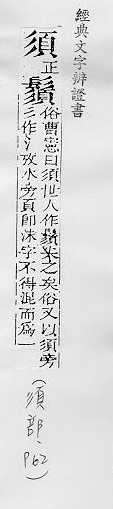 經典文字辨證書
須正
鬚俗曹憲曰須世人作鬚柒之矣俗又以須旁
彡作氵攷水旁頁即沬字不得混而爲一
(須部、P62)